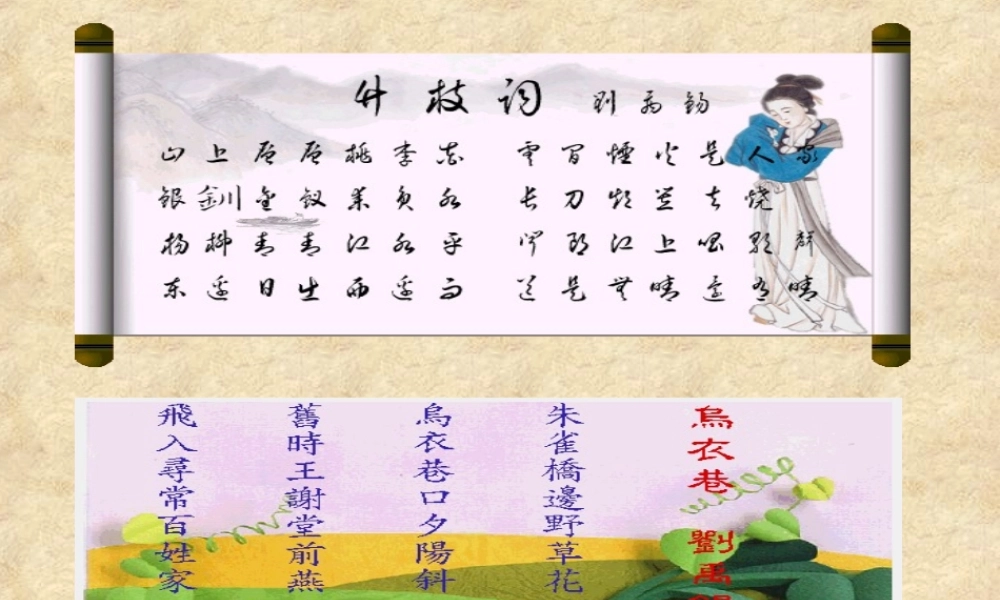 竹枝词 刘禹锡
山上层层桃李花 雲间煙火是人家
银釧金钗来负水 长刀短笠去烧
杨柳青青江水平 闻郎江上唱歌聲
东边日出西边雨 道是無晴还有晴
烏衣巷 劉禹錫
朱雀橋邊野草花
烏衣巷口夕陽斜
舊時王謝堂前燕
飛入尋常百姓家